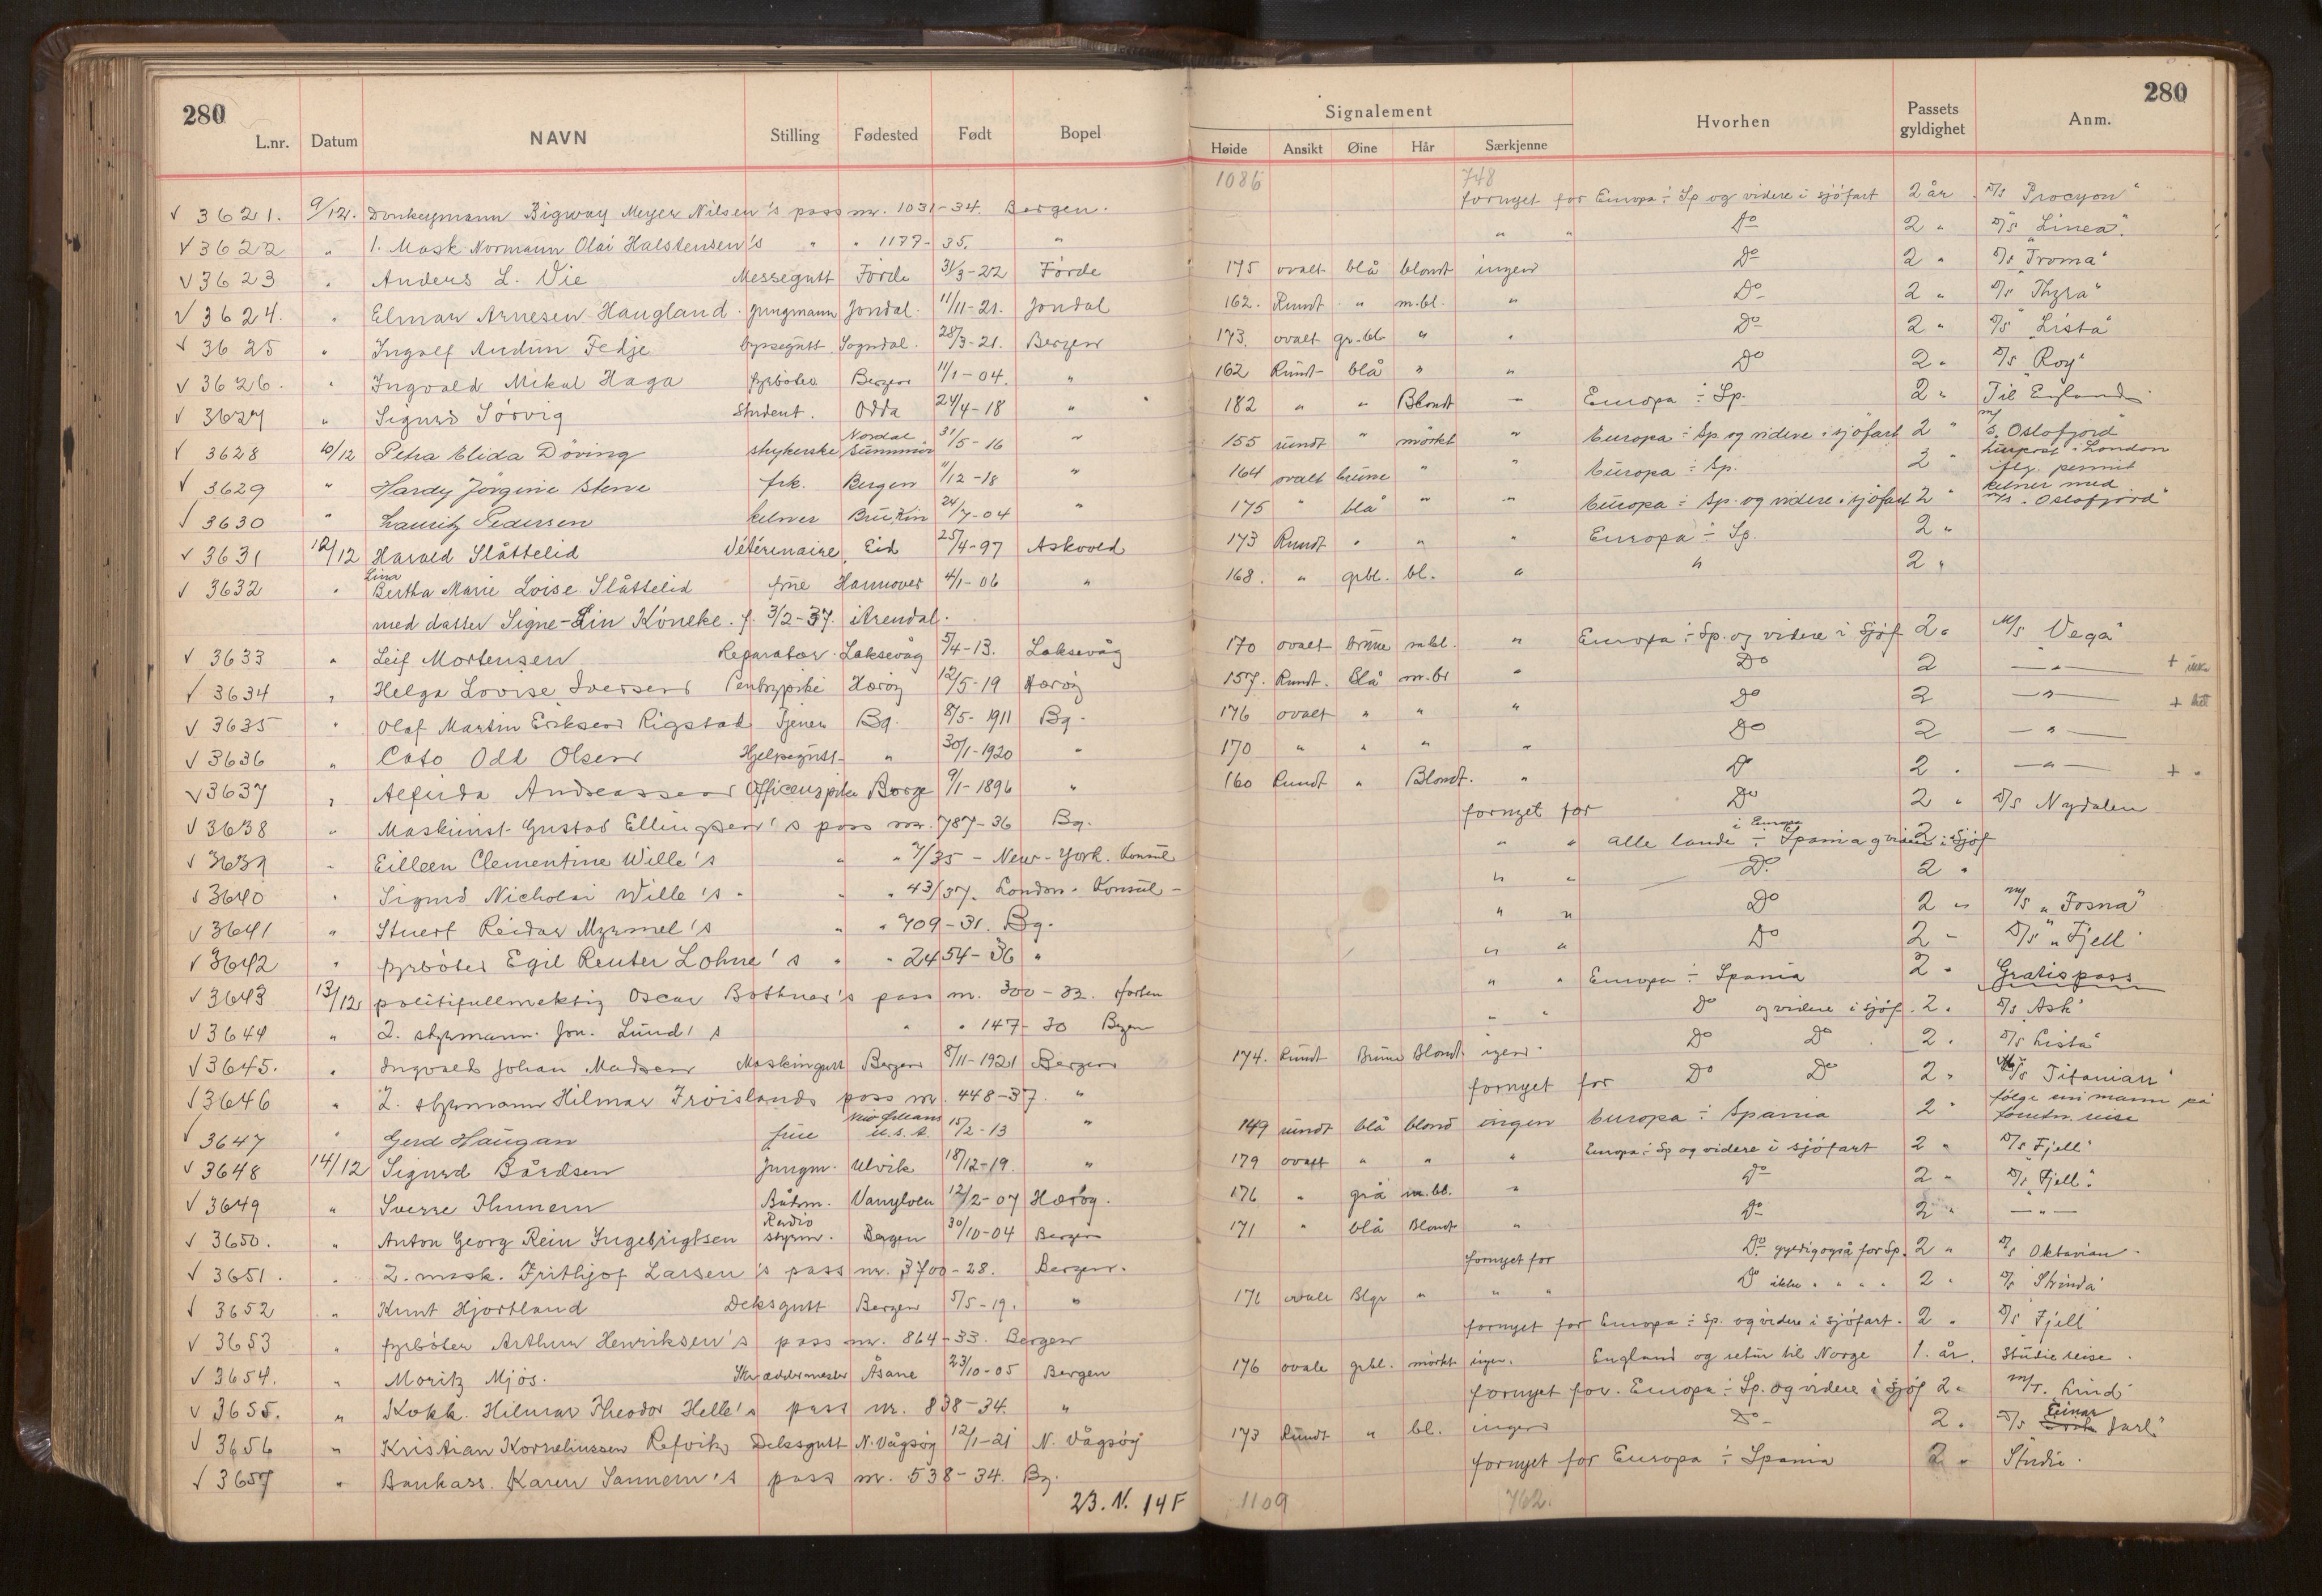 280 280
Signalement
L.nr. Datum NAVN Stilling Fødested Født Bopel Høide Ansikt Øine Hår Særkjenne Hvorhen Passets gyldighet Anm.
1086 748
√ 3621. 9/12. Donkeymann Bigway Meyer Nilsen's pass nr. 1031-34. Bergen. fornyet for Europa ÷ Sp og videre i sjöfart 2 år D/S "Procyon"
√ 3622 " 1. Mask. Normann Olai Halstensen's " " 1177-35. " " " Do 2 " D/S "Linea".
√ 3623 " Anders L. Vie Messegutt Förde 31/3-22 Förde 175 ovalt blå blondt ingen Do 2 " D/S "Troma"
√ 3624. " Elmar Arnesen Haugland. Jungmann Jondal. 11/11-21. Jondal 162. Rundt " m.bl. " Do 2 " D/S "Thyra"
√ 3625 " Ingolf Audun Fedje byssegutt Sogndal. 28/3-21. Bergen 173. ovalt gr.bl. " " Do 2 " D/S "Lista"
√ 3626. " Ingvald Mikal Haga fyrböter Bergen 11/1-04. " 162 Rundt blå " " Do 2 " D/S "Roy"
√ 3627 " Sigurd Sörvig Student. Odda 24/4-18 " 182 " " Blondt " Europa ÷ Sp. 2 " Til England
√ 3628 10/12 Petra Elida Döving strykerske Nordal Sunnmör 31/5-16 " 155 rundt " mörkt " Europa ÷ Sp. og videre i sjöfart 2 " M/S. Oslofjord
√ 3629 " Hardy Jörgine Stene frk. Bergen 11/12-18 " 164 ovalt brune " " Europa ÷ Sp. 2 " i London flg. permit
√ 3630 " Lauritz Pedersen kelner 24/7-04 " 175 " blå " " Europa ÷ Sp. og videre i sjöfart 2 " kelner med M/S. "Oslofjord"
√ 3631 12/12 Harald Slåttelid Vétérinaire Eid 25/4-97 Askvold 173 Rundt " " " Europa ÷ Sp. 2 "
√ 3632 " Lina Bertha Marie Loise Slåttelid frue Hannover 4/1-06 " 168. " grbl. bl. " " 2 "
med datter Signe-Lin Köneke. f. 3/2-37. i Arendal.
√ 3633 " Leif Mortensen Reparatör Laksevåg 5/4-13. Laksevåg 170 ovalt brune m.bl. " Europa ÷ Sp. og videre i Sjöf 2 " M/S "Vega"
√ 3634 " Helga Lovise Iversen Pentrypike Heröy 12/5-19 Heröy 157. Rundt. Blå m.br " Do 2 — " — +
√ 3635 " Olaf Martin Eriksen Rigstad Tjener Bg. 8/5-1911 Bg. 176 ovalt " " " Do 2 — " — +
√ 3636 " Cato Odd Olsen Hjelpegutt " 30/1-1920 " 170 " " " " Do 2 — " —
√ 3637 " Alfrida Andreassen Officerspike Borge 9/1-1896 " 160 Rundt " Blondt. " Do 2 " — " — + "
√ 3638 " Maskinist Gustav Ellingsen's pass nr. 787-36 Bg. fornyet for Do 2 " D/S Nydalen
√ 3639 " Eilleen Clementine Wille's " " 7/35 - New-York. Konsul " " alle lande i Europa ÷ Spania og videre i Sjöf 2
√ 3640 " Sigurd Nicholai Wille's " " 43/37. London. Konsul - " " Do 2 "
√ 3641 " Stuert Reidar Myrmel's " " 709-31. Bg. " " Do 2 " M/S "Fosna"
√ 3642 " fyrböter Egil Reuter Lohne's " " 2454-36 " " " Do 2 - D/S "Fjell"
√ 3643 13/12 politifullmektig Oscar Bothner's pass nr. 300-32. Horten " " Europa ÷ Spania 2 " Gratispass
√ 3644 " 2. styrmann Jon. Lund's " " 147-30 Bergen " " Do og videre i sjöf. 2. D/S Ask"
√ 3645. " Ingvald Johan Madsen Maskingutt Bergen 8/11-1921 Bergen 174. Rundt Brune Blondt ingen Do Do 2. D/S Lista"
√ 3646 " 2. styrmann Hilmar Fröislands pass nr. 448-37. " fornyet for Do Do 2 " M/S Titanian"
√ 3647 " Gerd Haugan frue New Orleans U.S.A. 15/2-13 " 149 rundt blå blond ingen Europa ÷ Spania 2 " fölge sin mann på reise
√ 3648 14/12 Sigurd Bårdsen Jungm. Ulvik 18/12-19. " 179 ovalt " " " Europa ÷ Sp og videre i sjöfart 2 " D/S Fjell"
√ 3649 " Sverre Thunem Båtsm. Vanylven 12/2-07 Heröy. 176 " grå m.bl. " Do 2 " D/S "Fjell".
√ 3650. " Anton Georg Rein Ingebrigtsen Radio styrm. Bergen 30/10-04 Bergen 171 " blå Blondt " Do 2 " — " —
√ 3651. " 2. mask. Frithjof Larsen's pass nr. 3700-28. Bergen. fornyet for Do gyldig også for Sp. 2 " D/S Oktavian
√ 3652 " Knut Hjortland Deksgutt Bergen 5/5-19. " 171 ovalt Blgr " " " Do ikke " " " 2 " D/S "Strinda"
√ 3653 " fyrböter Arthur Henriksen's pass nr. 864-33. Bergen fornyet for Europa ÷ Sp. og videre i sjöfart. 2 " D/S "Fjell"
√ 3654. " Moritz Mjös. Skreddermester Åsane 23/10-05 Bergen 176 ovale grbl. mörkt ingen. England og retur til Norge 1. år. Studiereise.
√ 3655. " Kokk. Hilmar Theodor Helle's pass nr. 838-34. " fornyet for. Europa ÷ Sp. og videre i Sjöf 2 " M/T. Lind
√ 3656 " Kristian Korneliussen Refvik Deksgutt N. Vågsöy 12/1-21 N. Vågsöy 173 Rundt " bl. ingen Do 2 " D/S Einar Jarl"
√ 3657 " Bankass. Karen Sannem's pass nr. 538-34. Bg. fornyet for Europa ÷ Spania 2 " Studie.
23. N. 14 F 1109 762.